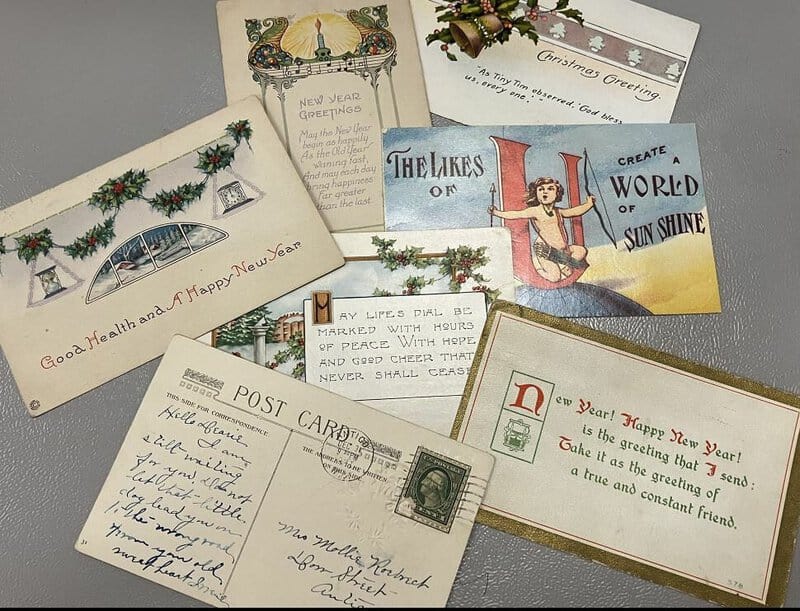 NEW YEAR
GREETINGS
May the New Year
begin as happily
As the Old Year's
waning fast,
And may each day
bring happiness
Far greater
than the last
Christmas Greeting.
"As Tiny Tim observed, "God bless
us, every one."
THE LIKES
OF
U
CREATE A
WORLD
OF
SUNSHINE
Good Health and A Happy New Year
MAY LIFE'S DIAL BE
MARKED WITH HOURS
OF PEACE WITH HOPE
AND GOOD CHEER THAT
NEVER SHALL CEASE
New Year! Happy New Year!
is the greeting that I send:
Take it as the greeting of
a true and constant friend.
578
POST CARD
THIS SIDE FOR CORRESPONDENCE
THE ADDRESS TO BE WRITTEN
ON THIS SIDE
Hello Dearie
I am
still waiting
for you, do not
let that little
dog lead you on
to the wrong road
From your old
sweetheart
Mrs Mollie
Street